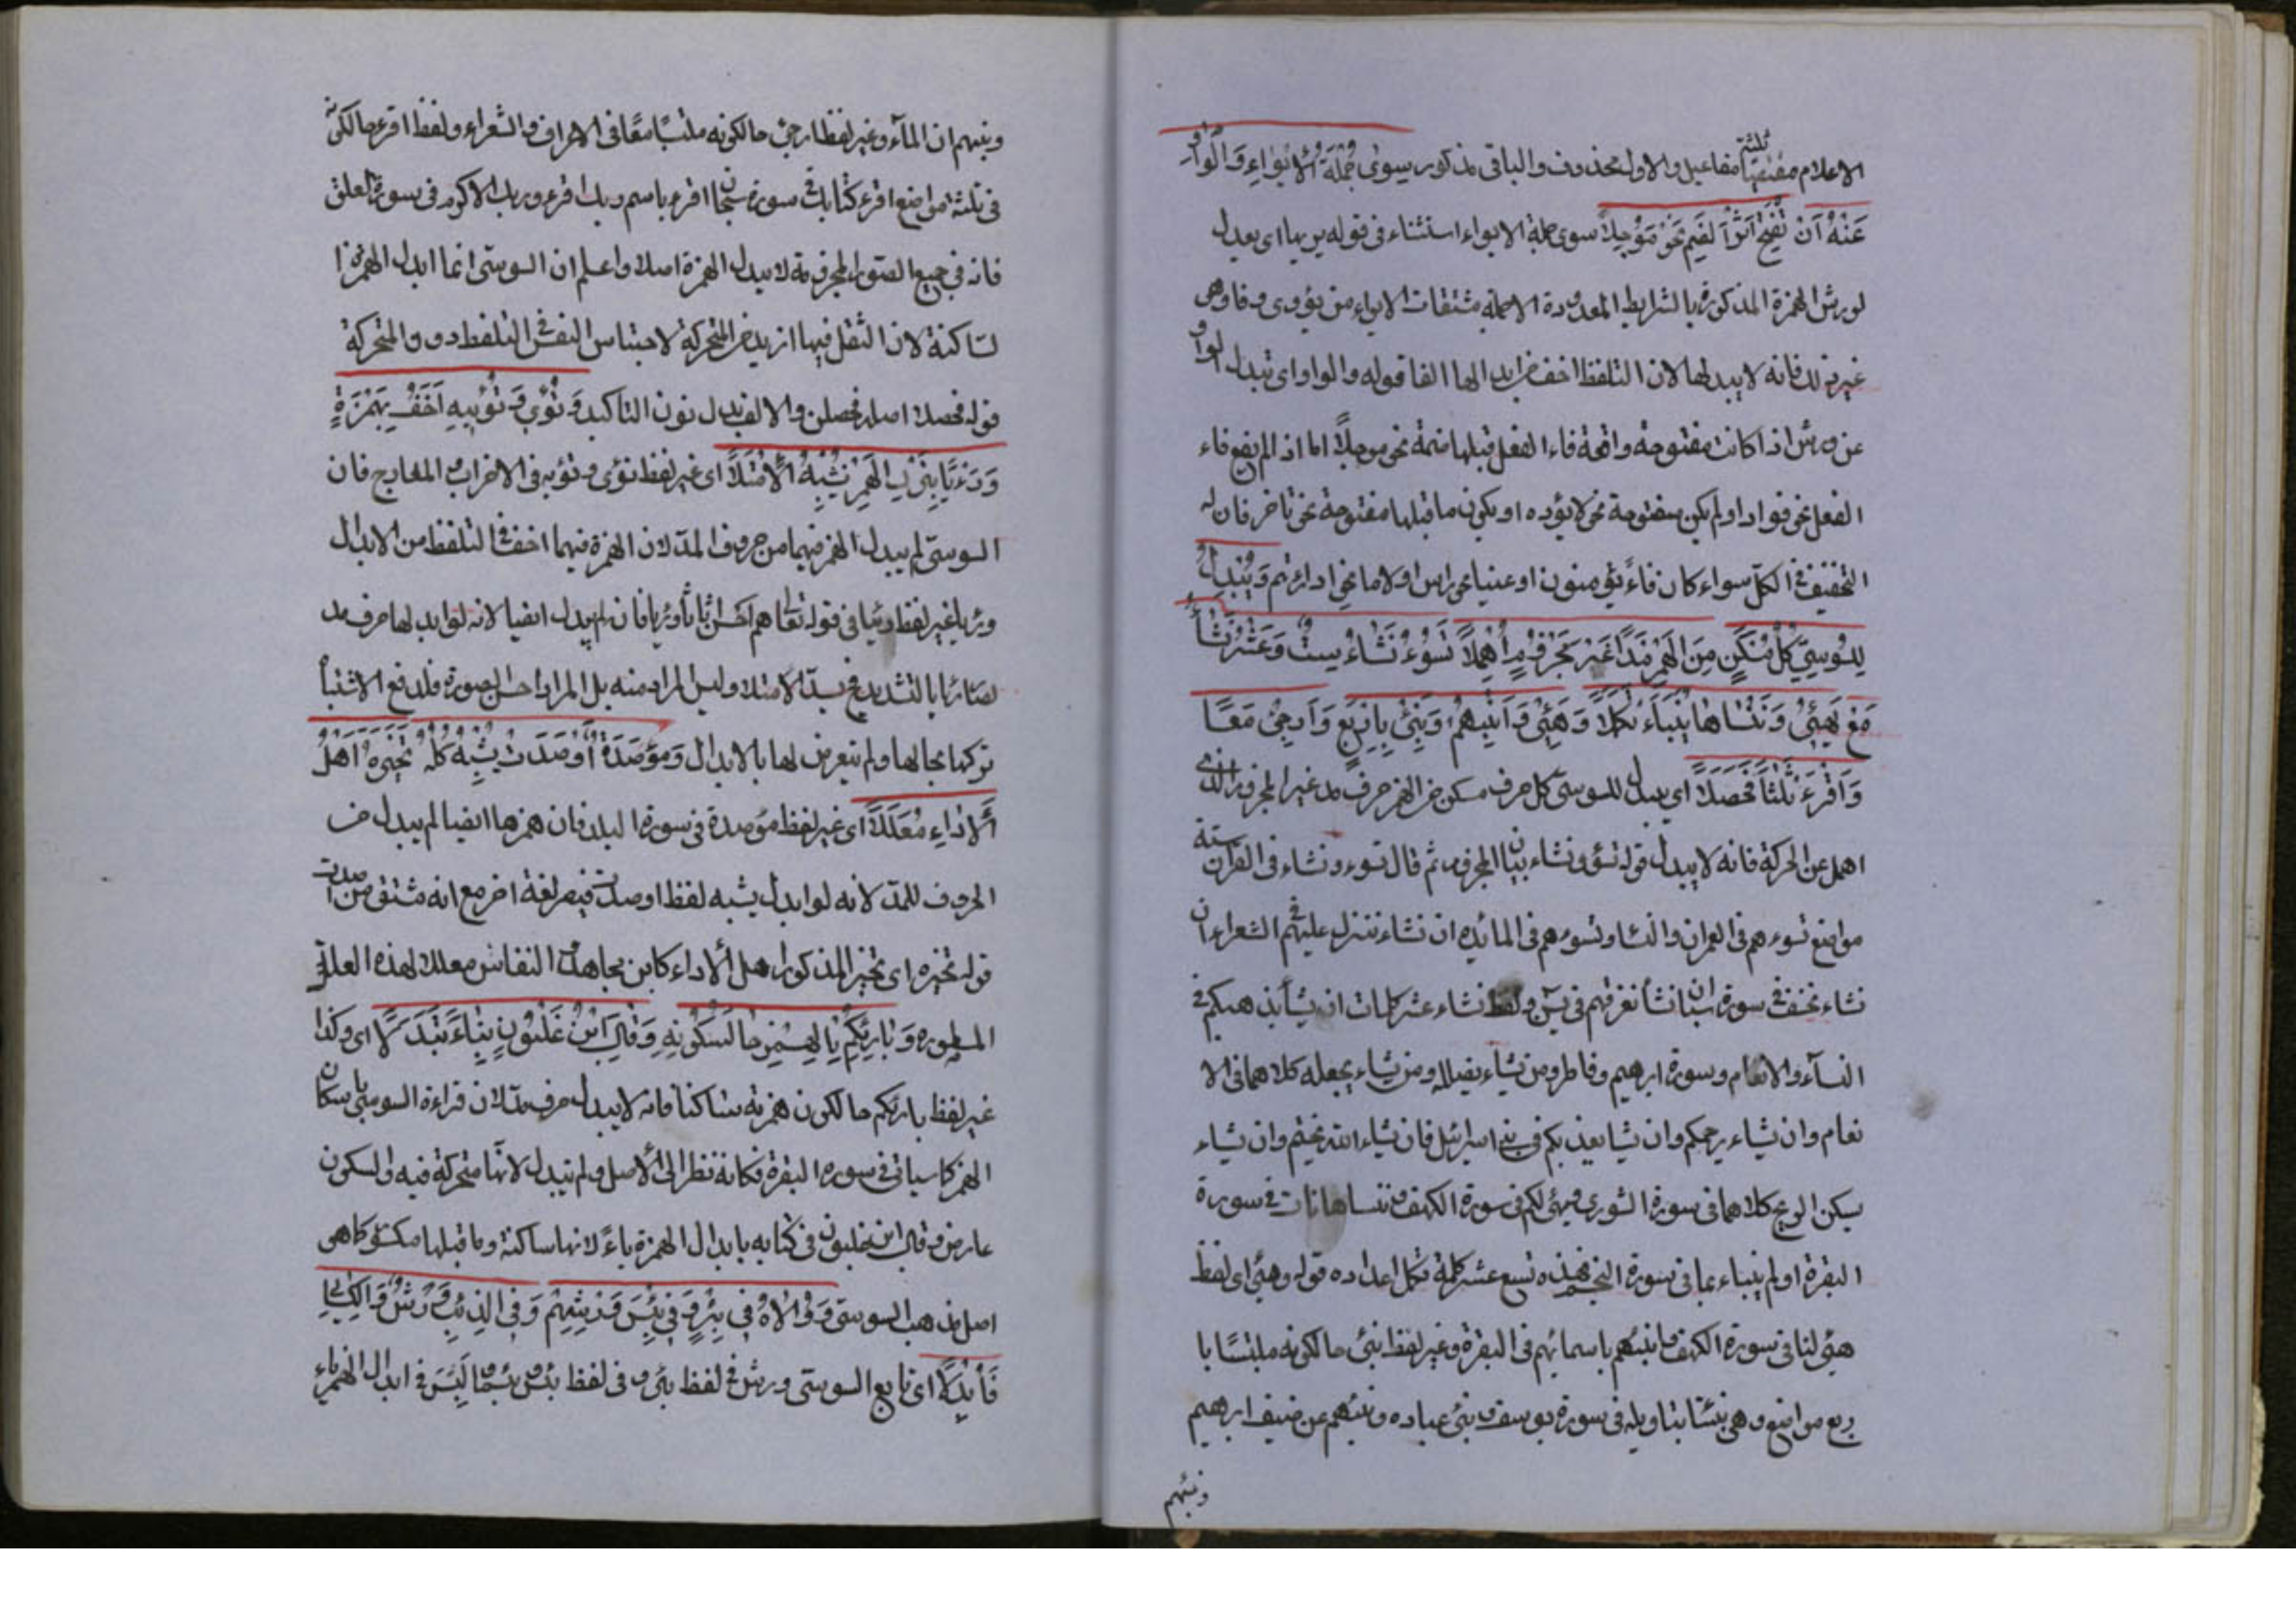 الاعلام مقتضيا ثلثة مفاعيل والاول محذوف والباقى مذكور سِوٰى جُمْلَةَ الْاِيْوَاءِ وَالْوَاوُ
عَنْهُ اَنْ تُفَتَّحَ اَثَرًا لِضَمٍّ نَحْوُ مُؤَجَّلًا سوى جملة الايواء استثناء فى قوله يريها اى يبدل
لورش الهمزة المذكورة بالشرايط المعدودة الا جملة مشتقات الايواء من يؤوى وفاوهى
غير ذلك فانه لا يبدلها لان التلفظ اخف من ابدالها الفا قوله والواو اى تبدل الواو
عن ورش اذا كانت مفتوحة واقعة فاء الفعل قبلها ضمة نحو موجلًا اما اذا لم يقع فاء
الفعل نحو فواد او لم يكن مفتوحة نحو لا يؤده او يكون ما قبلها مفتوحة نحو تاخر فان له
التخفيف فى الكل سواء كان فاءً نحو يؤمنون او عينا نحو راس او لاما نحو ادارأتم وَيُبْدَلُ
لِلسُّوسِىِّ كُلُّ مُسَكَّنٍ مِنَ الْهَمْزِ مَدًّا غَيْرَ مَجْزُومٍ أُهْمِلًا تَسُؤْ وَنَشَأْ سِتٌّ وَعَشْرُ يَشَأْ
مَعْ يُهَيِّئْ وَنَنْسَأْهَا يُنَبَّأْ تَكَمَّلًا وَهَيِّئْ وَاَنْبِئْهُمْ وَنَبِّئْ بِاَرْبَعٍ وَاَرْجِئْ مَعًا
وَاقْرَءْ ثَلٰثًا فَحَصِّلًا اى يبدل للسوسى كل حرف مسكن من الهمز حرف مد غير المجزوم الذى
اهمل عن الحركة فانه لا يبدل قوله تسؤ ونشاء بيان المجزوم ثم قال تسوء ونشاء فى القران ستة
مواضع تسوءهم فى العمران والنساء وتسوءهم فى المائده ان نشاء ننزل عليهم فى الشعراء ان
نشاء نخسف فى سورة سبا ان نشأ نغرقهم فى يس ولفظ نشاء عشر كلمات ان يشأ يذهبكم فى
النسآء والانعام وسورة ابرهيم وفاطر ومن يشاء يضلله ومن يشاء يجعله كلاهما فى الا
نعام وان يشاء يرحمكم وان يشا يعذبكم فى بنى اسرائيل فان يشاء الله يختم وان يشاء
يسكن الريح كلاهما فى سورة الشورى ويهئ لكم فى سورة الكهف وننساها نات فى سورة
البقرة او لم ينباء بما فى سورة النجم فهذه تسع عشر كلمة تكمل اعداده قوله وهيئ اى لفظ
هيئ لنا فى سورة الكهف وانبئهم باسمائهم فى البقرة وغير لفظ نبئ حالكونه ملتبسًا با
ربع مواضع وهى نبئنا بتاويله فى سورة يوسف نبئ عباده ونبئهم عن ضيف ابرهيم
ونبئهم
ونبئهم ان المآء وغير لفظ ارجئ حالكونه ملتبسًا معًا فى الاعراف والشعراء ولفظ اقرء حالكونه
فى ثلثة مواضع اقرء كتابك فى سورة سبحان اقرء باسم ربك اقرء وربك الاكرم فى سورة العلق
فانه فى جميع الصور المجزومة لا يبدل الهمزة اصلا واعلم ان السوسى انما ابدل الهمز اذا
لساكنة لان الثقل فيها ازيد من المتحركة لاحتباس النفس فى التلفظ دون المتحركة
قوله فحصلا اصله فحصلن والالف بدل نون التاكيد وَتُؤْوِى وَتُؤْوِيهِ اَخَفُّ بِهَمْزَةٍ
وَرِءْيًا بِتَرْكِ الْهَمْزِ يُشْبِهُ الْاِمْتِلَا اى غير لفظ تؤى وتؤيه فى الاحزاب والمعارج فان
السوسى لم يبدل الهمز فيهما من حروف المد لان الهمزة فيهما اخف فى التلفظ من الابدال
ورئيا غير لفظ رئيا فى قوله تعالى هم احسن اثاثا ورئيا فانه لم يبدل ايضا لانه لو ابدلها حرف مد
لصار ريا بالتشديد فيشبه الامتلاء وليس المراد منه بل المراد احسن الصورة فلدفع الاشتباه
تركها بحالها ولم يتعرض لها بالابدال وَمُؤْصَدَةٌ اَوْصَدْتُ يُشْبِهُ كُلُّهُ تَخَيَّرَهُ اَهْلُ
الْاَدَاءِ مُعَلَّلًا اى غير لفظ مؤصدة فى سورة البلد فان همزها ايضا لم يبدل من
الحروف للمد لانه لو ابدل يشبه لفظ اوصدت فيصير لغة اخر مع انه مشتق من اصدت
قوله تخيره اى تخير المذكور اهل الأداء كابن مجاهد والنقاش معللا لهذه العلة
المسطوره وَبَارِئِكُمْ بِالْهَمْزِ حَالَ سُكُونِهِ وَقَالَ ابْنُ غَلْبُونٍ بِيَاءٍ تَبَدَّلَا اى وكذا
غير لفظ بارئكم حالكون همزته ساكنا فانه لا يبدل حرف مد لان قراءة السوسى باسكان
الهمز كاسياتى فى سوره البقرة فكانه نظر الى الأصل ولم تبدل لانها متحركة فيه والسكون
عارض وقال ابن غلبون فى كتابه بابدال الهمزة ياءً لانها ساكنة وما قبلها مكسور كما هى
اصل مذهب السوسى وَوَالَاهُ فِى بِئْرٍ وَفِى بِئْسَ وَرْشُهُمْ وَفِى الذِّئْبِ وَرْشٌ وَالْكِسَائِى
فَاَبْدَلَا اى تابع السوسى ورش فى لفظ بئر وفى لفظ بئس بئسما لبئس فى ابدال الهمز ياء